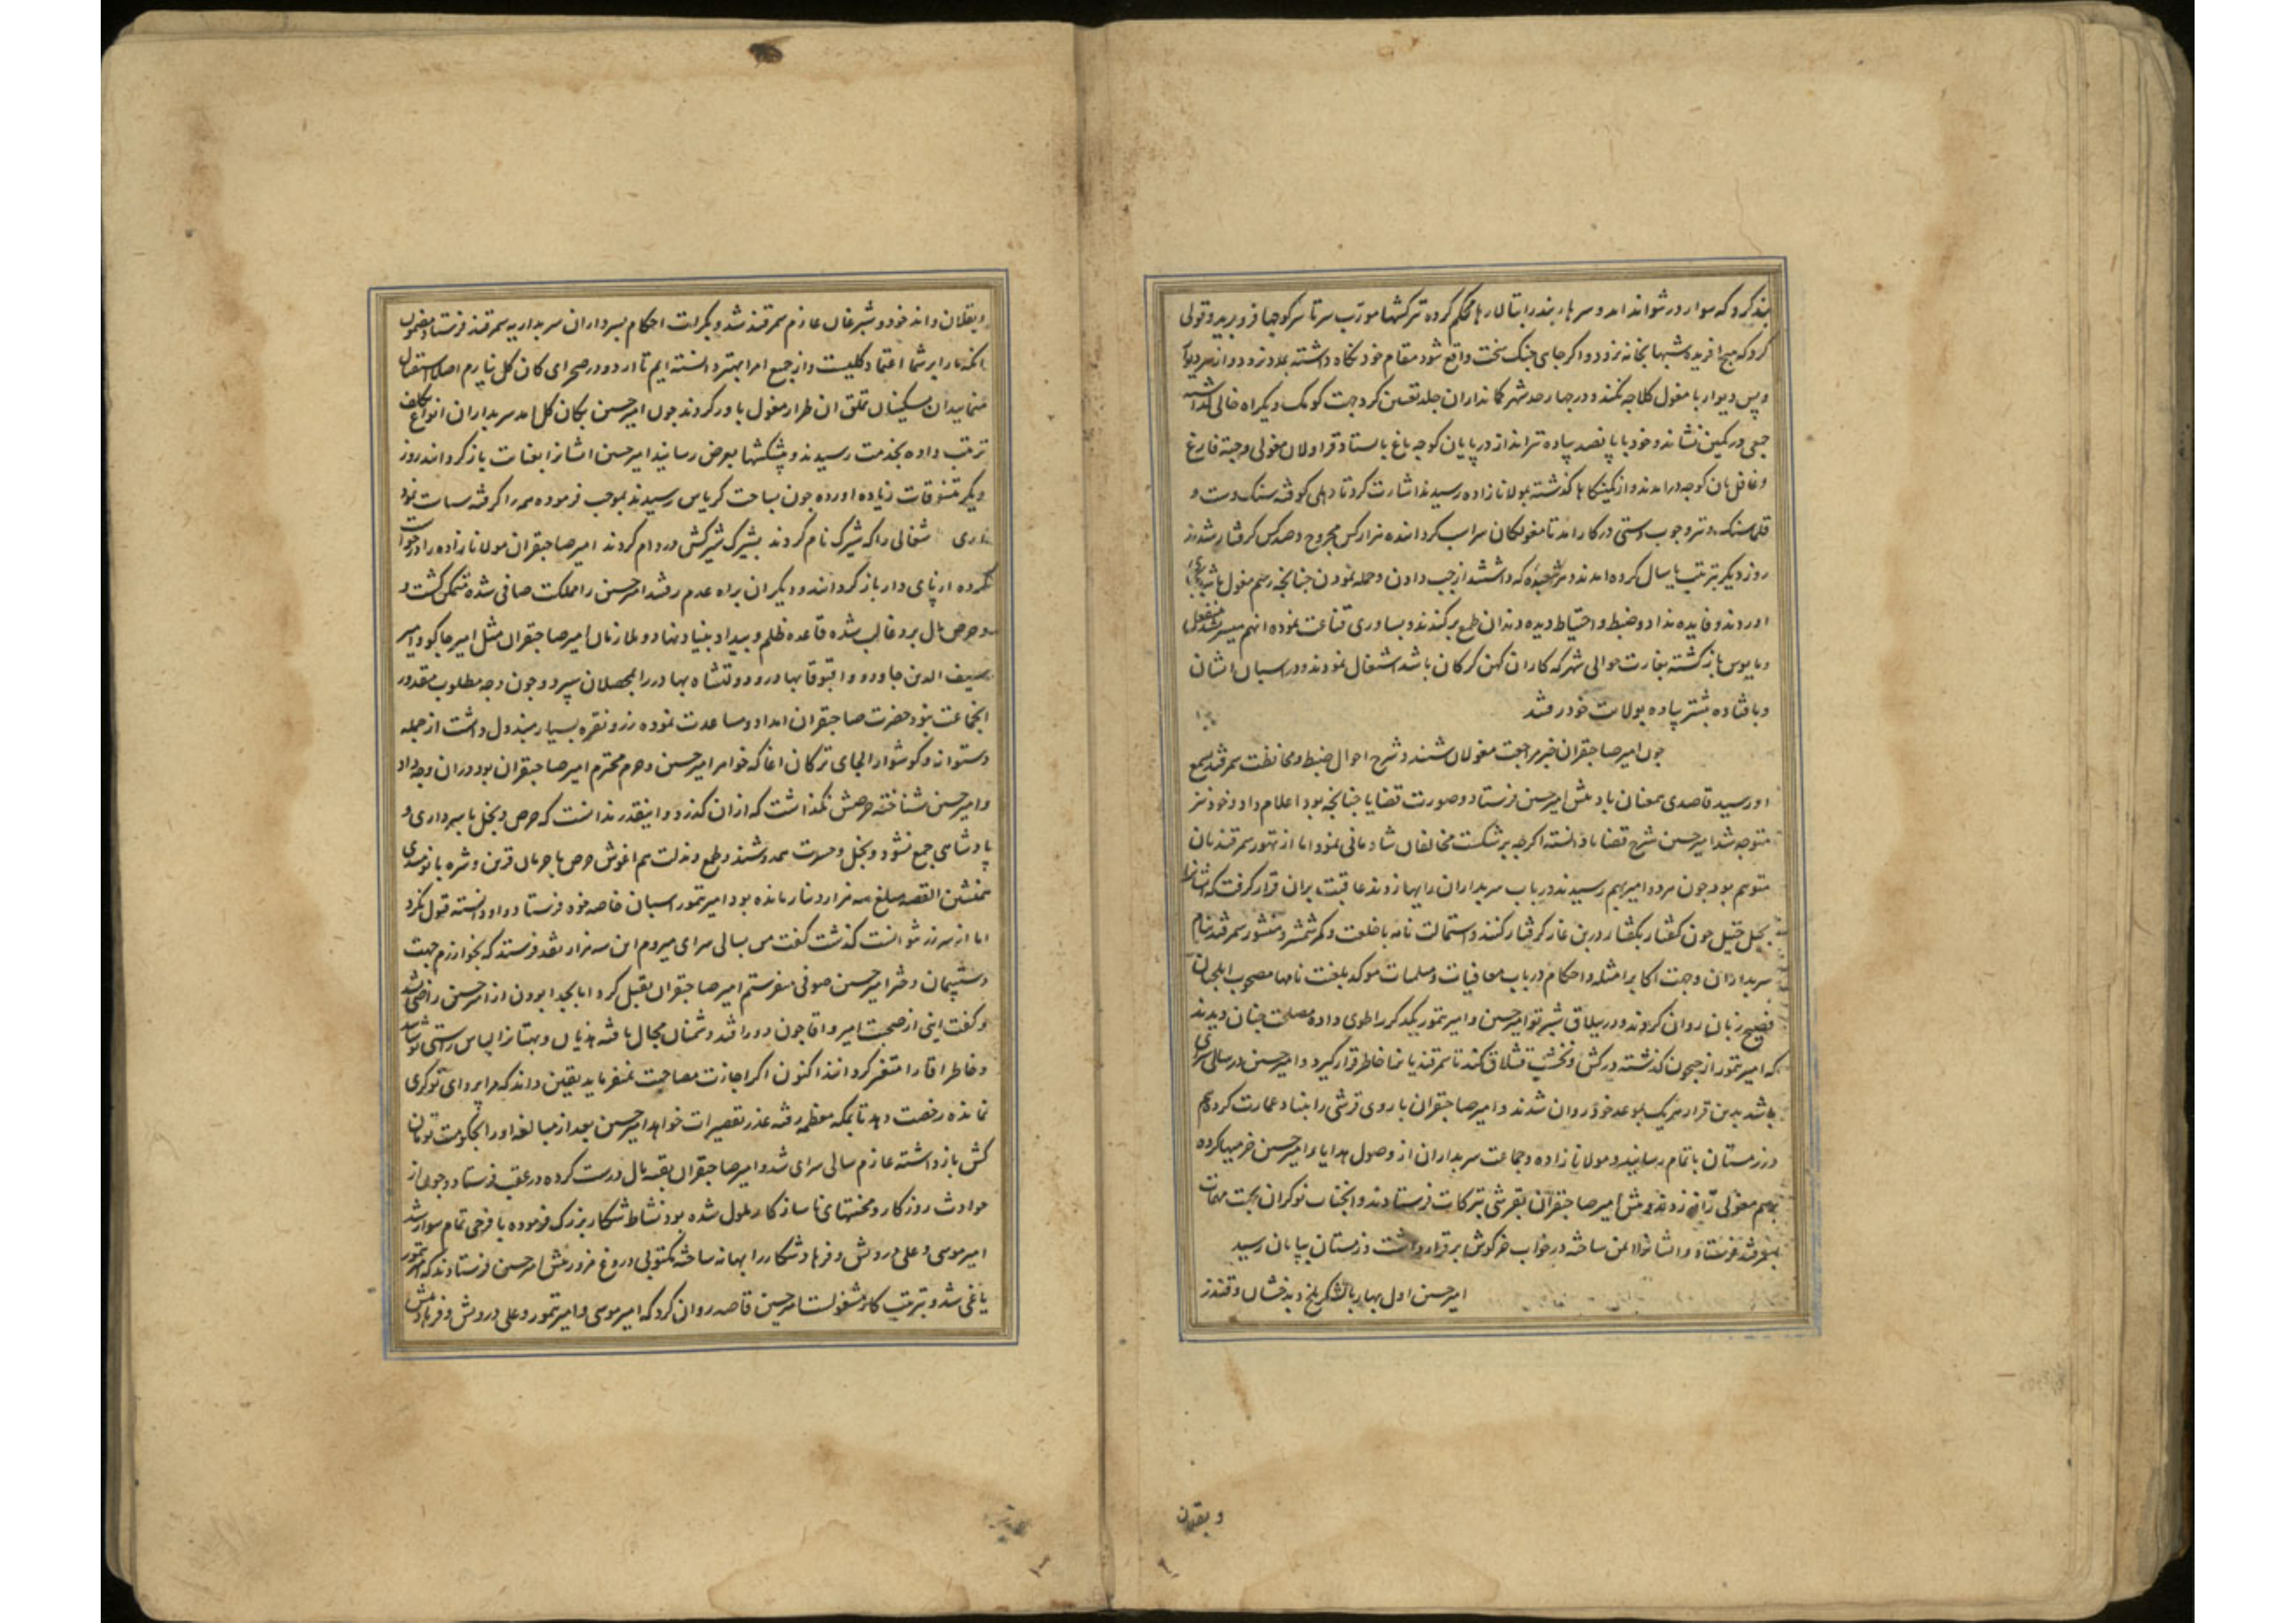 بند کرد که سوار در نتواند امد و سرها ربند را بتالارها محکم کرده ترکشها مورّب سرتاسر کوچها فرو برید و قولی
کرد که هیچ افریده شبها بخانه نرود و اگر جای جنک سخت واقع شود مقام خود نکاه داشته بمدد نرود و از سر دیوار
و پس دیوار با مغول کلاجه نکنند و در چهار حد شهر کمانداران جلد تعیین کرد جهت کومک و یکراه خالی کذاشته
جمعی در کمین نشاند و خود با پانصد پیاده تیرانداز در پایان کوچه باغ بایستاد قراولان مغولی وجته فارغ
و غافل بان کوچه درامدند و از کمینکاها کذشته بمولانازاده رسیدند اشارت کرد تا دهلی کوفته سنک دست و
قلماسنک و تیر و چوب دستی در کار امد تا مغولکان سراب کردانده هزار کس مجروح و صد کس کرفتار شدند
روز دیکر بترتیب یاسال کرده امدند و هر شعبده که داشتند از جپ دادن و حمله نمودن چنانچه رسم مغول باشد بجای
اوردند و فایده نداد و ضبط و احتیاط دیده دندان طمع برکندند و بساوری قناعت نموده انهم میسر نشد منفعل
و مایوس بازکشته بغارت حوالی شهر که کار ان کهن کرکان باشد اشتغال نمودند و در اسبان ایشان
وبا فتاده بیشتر پیاده بولات خود رفتند
چون امیر صاحبقران خبر مراجعت مغولان شنید و شرح احوال ضبط و محافظت سمرقند بسمع
او رسید قاصدی بمعنان باد پیش امیر حسین فرستاد و صورت قضایا چنانچه بود اعلام داد و خود نیز
متوجه شد امیر حسین شرح قضایا دانسته اکرچه بر شکست مخالفان شادمانی نمود اما از تهور سمرقندیان
متوهم بود چون هر دو امیر بهم رسیدند در باب سربداران رایها زدند عاقبت بران قرار کرفت که ایشانرا
بحیل جون کفتار بکفتار در بن غار کرفتار کنند و استمالت نامه با خلعت و کمر شمشیر و منشور سمرقند بنام
سربداران و جهت اکابر امثله و احکام در باب معافیات و مسلمات موکد بلغت نامها مصحوب ایلچیان
فصیح زبان روان کردند و در ییلاق شبرتو امیر حسین و امیر تیمور یکدکر را طوی داده مصلحت چنان دیدند
که امیر تیمور از جیحون کذشته در کش و نخشب قشلاق کند تا سمرقندیانرا خاطر قرار کیرد و امیر حسین در سالی سرای
باشد بدین قرار هریک بموعد خود روان شدند و امیر صاحبقران باروی قرشی را بنیاد عمارت کرده هم
در زمستان باتمام رسانید و مولانا زاده و جماعت سربداران از وصول هدایاء امیر حسین خرمیها کرده
برسم مغولی زانو زدند و پیش امیر صاحبقران بقرشی تبرکات فرستادند و انجناب نوکران بجهت مهمات
بسمرقند فرستاد و ایشانرا ایمن ساخته در خواب خرکوش برقرار داشت و زمستان بپایان رسید
امیر حسین اول بهار با لشکر بلخ و بدخشان و قندز
و بقلان
و بقلان و اندخود و شبرغان عازم سمرقند شد و بکرات احکام بسرداران سربداریه سمرقند فرستاد مضمون
انکه مارا بر شما اعتماد کلیست و از جمیع امرا بهتر دانسته ایم تا اردو در صحرای کان کل نیاریم اصلا استقبال
منمایید ان مسکینان تملق ان طرار مغول باور کردند چون امیر حسین بکان کل امد سربداران انواع تکلف
ترتیب داده بخدمت رسیدند و پیشکشها بعرض رسانید امیر حسین ایشانرا بعنایت بازکردانید روز
دیکر تنسوقات زیاده اورده چون بساحت کریاس رسیدند بموجب فرموده همه را کرفته سیاست نمود
شغالی را که شیرک نام کردند بشیرک شیرکش در دام کردند امیر صاحبقران مولانا زاده را درخواست
کرده از پای دار بازکردانید و دیکران براه عدم رفتند امیر حسین را مملکت صافی شده متمکن کشت و
و حرص مال برو غالب شده قاعده ظلم و بیداد بنیاد نهاد و ملازمان امیر صاحبقران مثل امیر جاکو و امیر
سیف الدین جاورو و اقبوقا بهادر و دولتشاه بهادر را بمحصلان سپرد و چون وجه مطلوب مقدور
انجماعت نبود حضرت صاحبقران امداد و مساعدت نموده زر و نقره بسیار مبذول داشت از جمله
دستوانه و کوشوار الجای ترکان اغا که خواهر امیر حسین و حرم محترم امیر صاحبقران بود دران وجه داد
و امیر حسین شناخته حرصش نکذاشت که از ان کذرد و اینقدر ندانست که حرص و بخل با سرداری و
پادشاهی جمع نشود و بخل و حسرت همدوشند و طمع و مذلت هم اغوش حرص با حرمان قرین و شره با نومیدی
همنشین القصه مبلغ سه هزار دینار مانده بود امیر تیمور اسبان خاصه خود فرستاد و او دانسته قبول نکرد
اما از سر زر نتوانست کذشت کفت من بسالی سرای میروم این سه هزار نقد فرستند که بخوارزم جهت
دستپیمان دختر امیر حسین صوفی میفرستم امیر صاحبقران تقبل کرد اما بجدا بودن از امیر حسین راضی نشد
و کفت اینی از صحبت امیر و اقا چون دور افتد دشمنان مجال یافته هذیان و بهتانرا لباس راستی پوشانند
و خاطر اقا را متغیر کردانند اکنون اکر اجازت مصاحبت نمیفرماید یقین داند که مرا پروای نوکری
نمانده رخصت دهد تا بمکه معظمه رفته عذر تقصیرات خواهد امیر حسین بعد از مبالغه او را بحکومت تومان
کش باز داشته عازم سالی سرای شد و امیر صاحبقران بقیه مال درست کرده در عقب فرستاد و چون از
حوادث روزکار و محنتهای ناسازکار ملول شده بود نشاط شکار بزرک فرموده با فرحی تمام سوار شد
امیر موسی و علی درویش و فرهاد شکار را بهانه ساخته مکتوبی دروغ مزور پیش امیر حسین فرستادند که امیر تیمور
یاغی شد و بترتیب کار مشغولست امیر حسین قاصد روان کرد که امیر موسی و امیر تیمور و علی درویش و فرهاد پیش